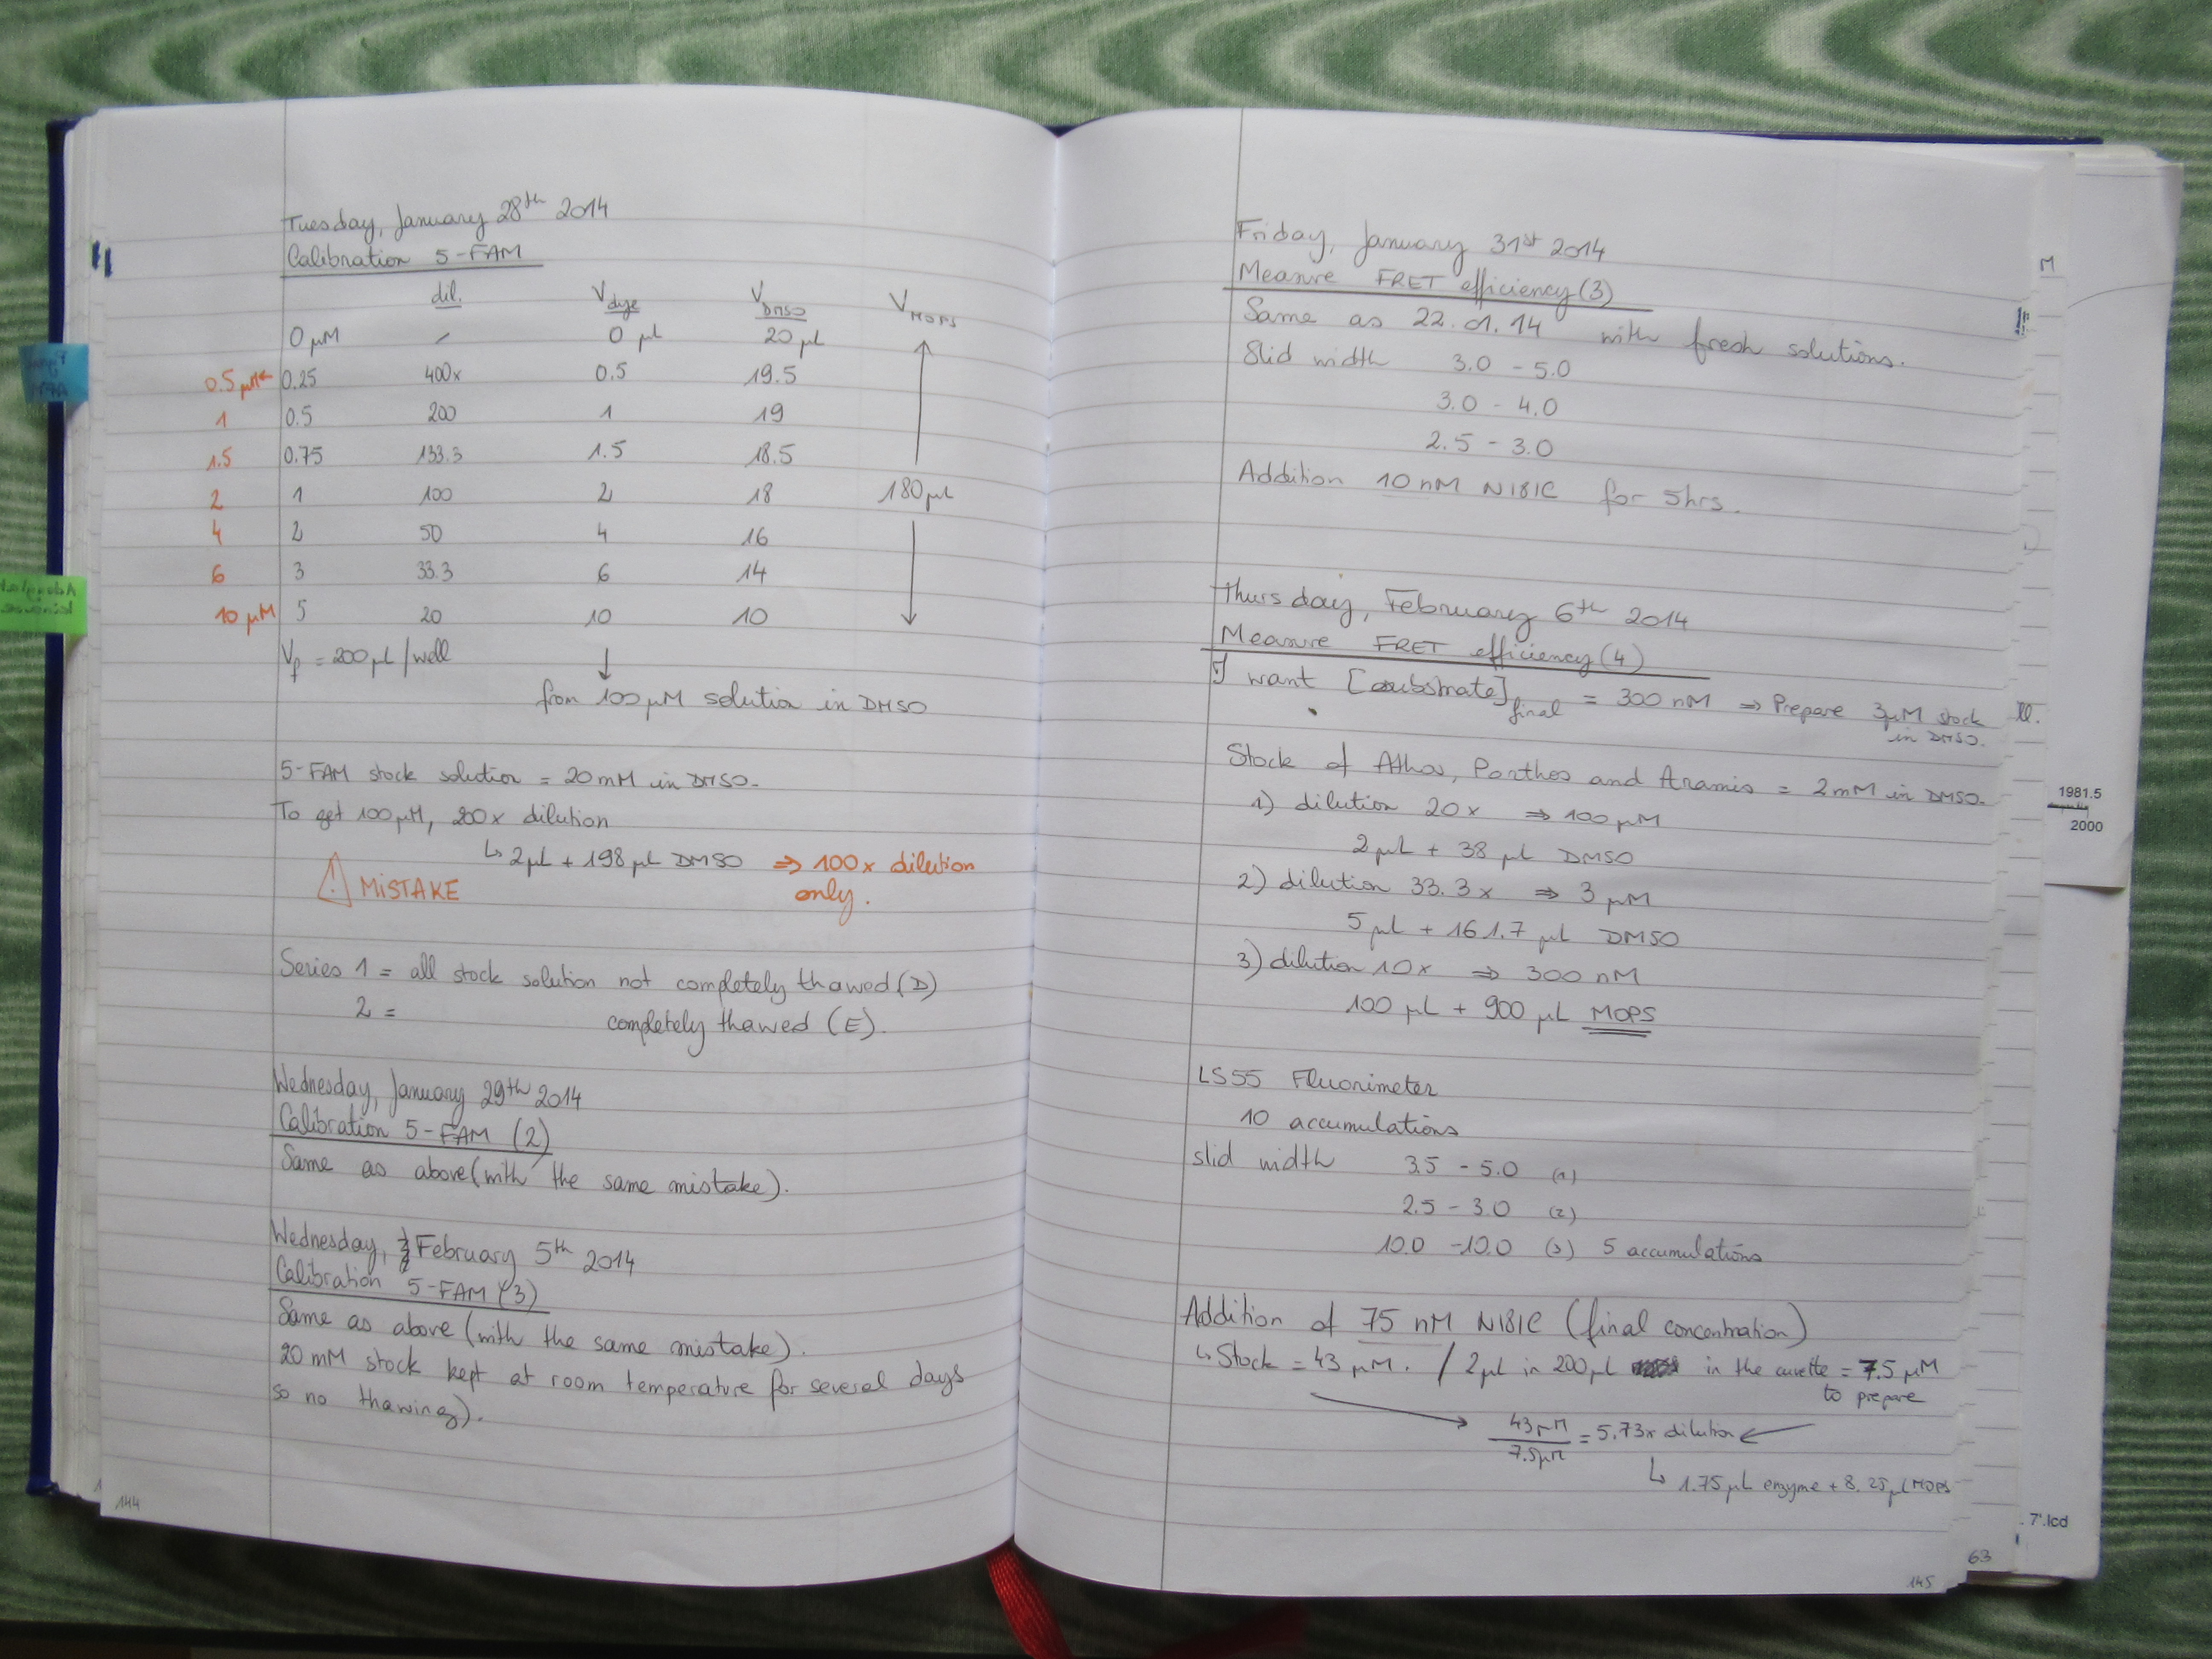 Tuesday, January 28th 2014
Calibration 5-FAM
dil. Vdye VDMSO VMOPS
0 µM / 0 µl 20 µL
0.5 µM ← 0.25 400x 0.5 19.5
1 0.5 200 1 19
1.5 0.75 133.3 1.5 18.5
2 1 100 2 18 180 µL
4 2 50 4 16
6 3 33.3 6 14
10 µM 5 20 10 10
Vf = 200 µL / well ↓
from 100 µM solution in DMSO
5-FAM stock solution = 20 mM in DMSO.
To get 100 µM, 200x dilution
↳ 2 µL + 198 µL DMSO ⇒ 100x dilution
only.
! MISTAKE
Series 1 = all stock solution not completely thawed (D)
2 = completely thawed (E).
Wednesday, January 29th 2014
Calibration 5-FAM (2)
Same as above (with the same mistake).
Wednesday, February 5th 2014
Calibration 5-FAM (3)
Same as above (with the same mistake).
20 mM stock kept at room temperature for several days
so no thawing).
144
Friday, January 31st 2014
Measure FRET efficiency (3)
Same as 22.01.14 with fresh solutions.
Slid width 3.0 - 5.0
3.0 - 4.0
2.5 - 3.0
Addition 10 nM N181C for 5hrs.
Thursday, February 6th 2014
Measure FRET efficiency (4)
I want [substrate]final = 300 nM ⇒ Prepare 3 µM stock
in DMSO.
Stock of Athos, Porthos and Aramis = 2 mM in DMSO.
1) dilution 20x ⇒ 100 µM
2 µL + 38 µL DMSO
2) dilution 33.3x ⇒ 3 µM
5 µL + 161.7 µL DMSO
3) dilution 10x ⇒ 300 nM
100 µL + 900 µL MOPS
LS55 Fluorimeter
10 accumulations
slid width 3.5 - 5.0 (1)
2.5 - 3.0 (2)
10.0 - 10.0 (3) 5 accumulations
Addition of 75 nM N181C (final concentration)
↳ Stock = 43 µM. / 2 µL in 200 µL in the cuvette = 7.5 µM
to prepare
43 µM / 7.5 µM = 5.73x dilution
↳ 1.75 µL enzyme + 8.25 µL MOPS
145
63
M
1981.5
2000
7'.lcd